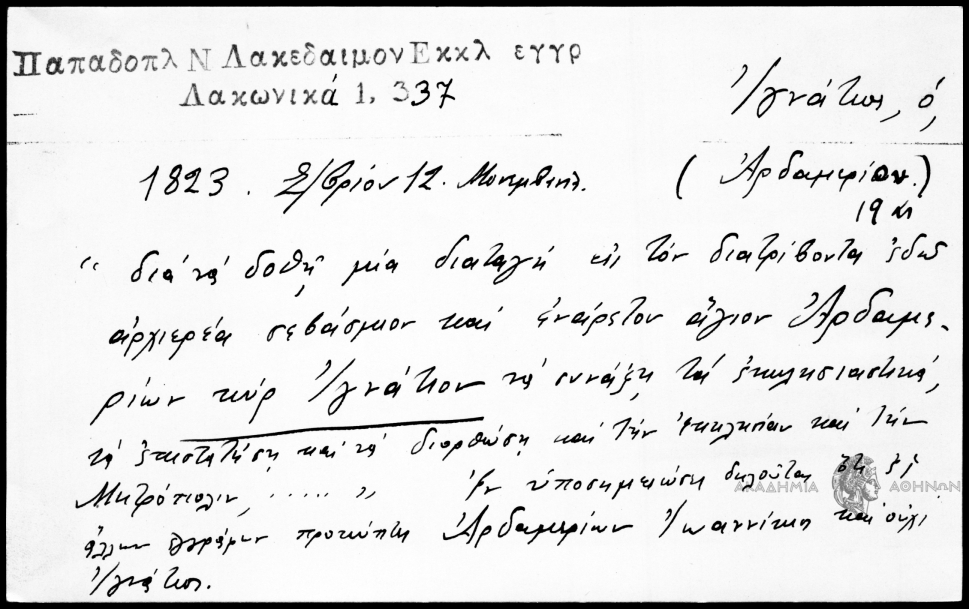 Παπαδοπλ Ν Λακεδαιμον Εκκλ εγγρ
Λακωνικά 1, 337
Ἰγνάτιος, ὁ,
1823. Σ/βρίου 12. Μονεμβασ.
(Ἀρδαμερίων.)
19 αι
“ διά νά δοθῇ μία διαταγή εἰς τόν διατρίβοντα ἐδῶ
ἀρχιερέα σεβάσμιον καί ἐνάρετον ἅγιον Ἀρδαμε-
ρίων κύρ Ἰγνάτιον νά συνάξῃ τά ἐκκλησιαστικά,
νά ἐπιστατήσῃ καί νά διορθώσῃ καί τήν ἐκκλησίαν καί τήν
Μητρόπολιν, ..... „ Ἐν ὑποσημειώσει δηλοῦται ὅτι ἐξ
ἄλλων ἐγγράφων προκύπτει Ἀρδαμερίων Ἰωαννίκιος καί οὐχί
Ἰγνάτιος.
ΑΚΑΔΗΜΙΑ ΑΘΗΝΩΝ